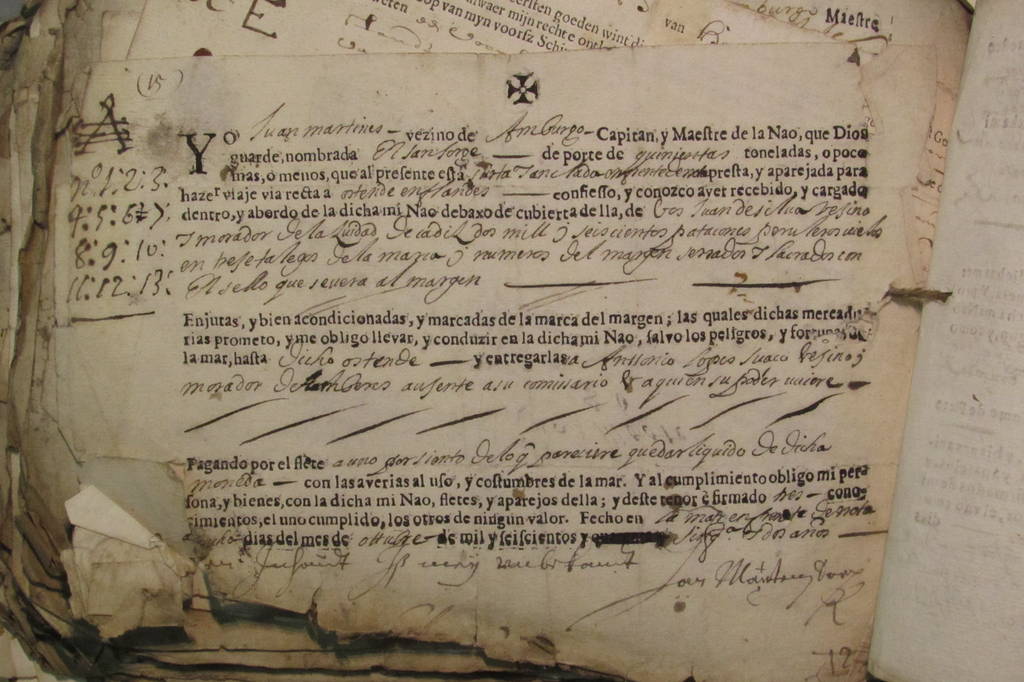 E
eersten goeden wint
waer mijn rechte
op van myn voorsz Schi
van
Maestre
(15)
YO Juan martines – vezino de Amburgo – Capitan, y Maestre de la Nao, que Dios
guarde, nombrada El san Jorge — de porte de quinientas toneladas, o poco
mas, o menos, que al presente està surta presta, y aparejada para
hazer viaje via recta a ostende en flandes — confiesso, y conozco aver recebido, y cargado
dentro, y abordo de la dicha mi Nao debaxo de cubierta della, de Juan de silva vesino
y morador de la ciudad de cadiz dos mill y seiscientos patacones peruleros
en trese talegos de la marca y numeros del margen serrados y lacrados con
El sello que severa al margen
nº 1:2:3:
4:5:6:7:
8:9:10:
11:12:13:
Enjutas, y bien acondicionadas, y marcadas de la marca del margen; las quales dichas mercadu
rias prometo, y me obligo llevar, y conduzir en la dicha mi Nao, salvo los peligros, y fortunas de
la mar, hasta dicho ostende — y entregarlas a Anttonio Lopes Suaco vesino y
morador de Amberes ausente a su comissario a quien su poder uviere
Pagando por el flete a uno por siento de lo q pareciere quedar liquido de dicha
moneda — con las averias al uso, y costumbres de la mar. Y al cumplimiento obligo mi per
sona, y bienes, con la dicha mi Nao, fletes, y aparejos della; y deste tenor è firmado tres – cono-
cimientos, el uno cumplido, los otros de ningun valor. Fecho en la mar en frente de rota
a ocho dias del mes de ottubre de mil y seiscientos y sinqta y dos años